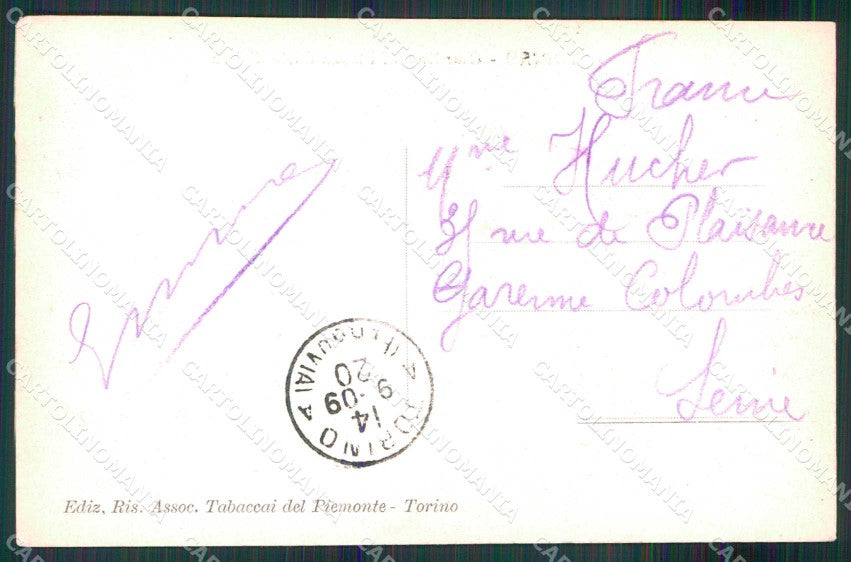 France
Mme Hucher
31 rue de Plaisance
Garenne Colombes
Seine
TORINO
14
-09
9
20
Ediz. Ris. Assoc. Tabaccai del Piemonte - Torino
CARTOLINOMANIA